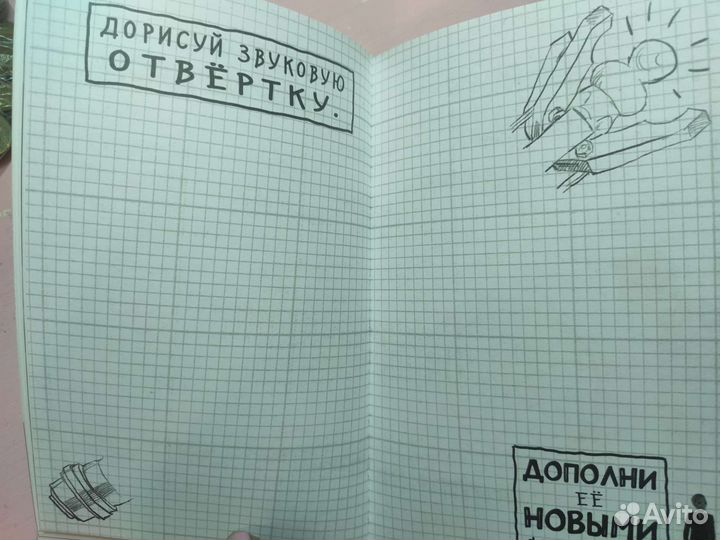 ДОРИСУЙ ЗВУКОВУЮ
ОТВЁРТКУ.
ДОПОЛНИ
ЕЁ
НОВЫМИ
Avito